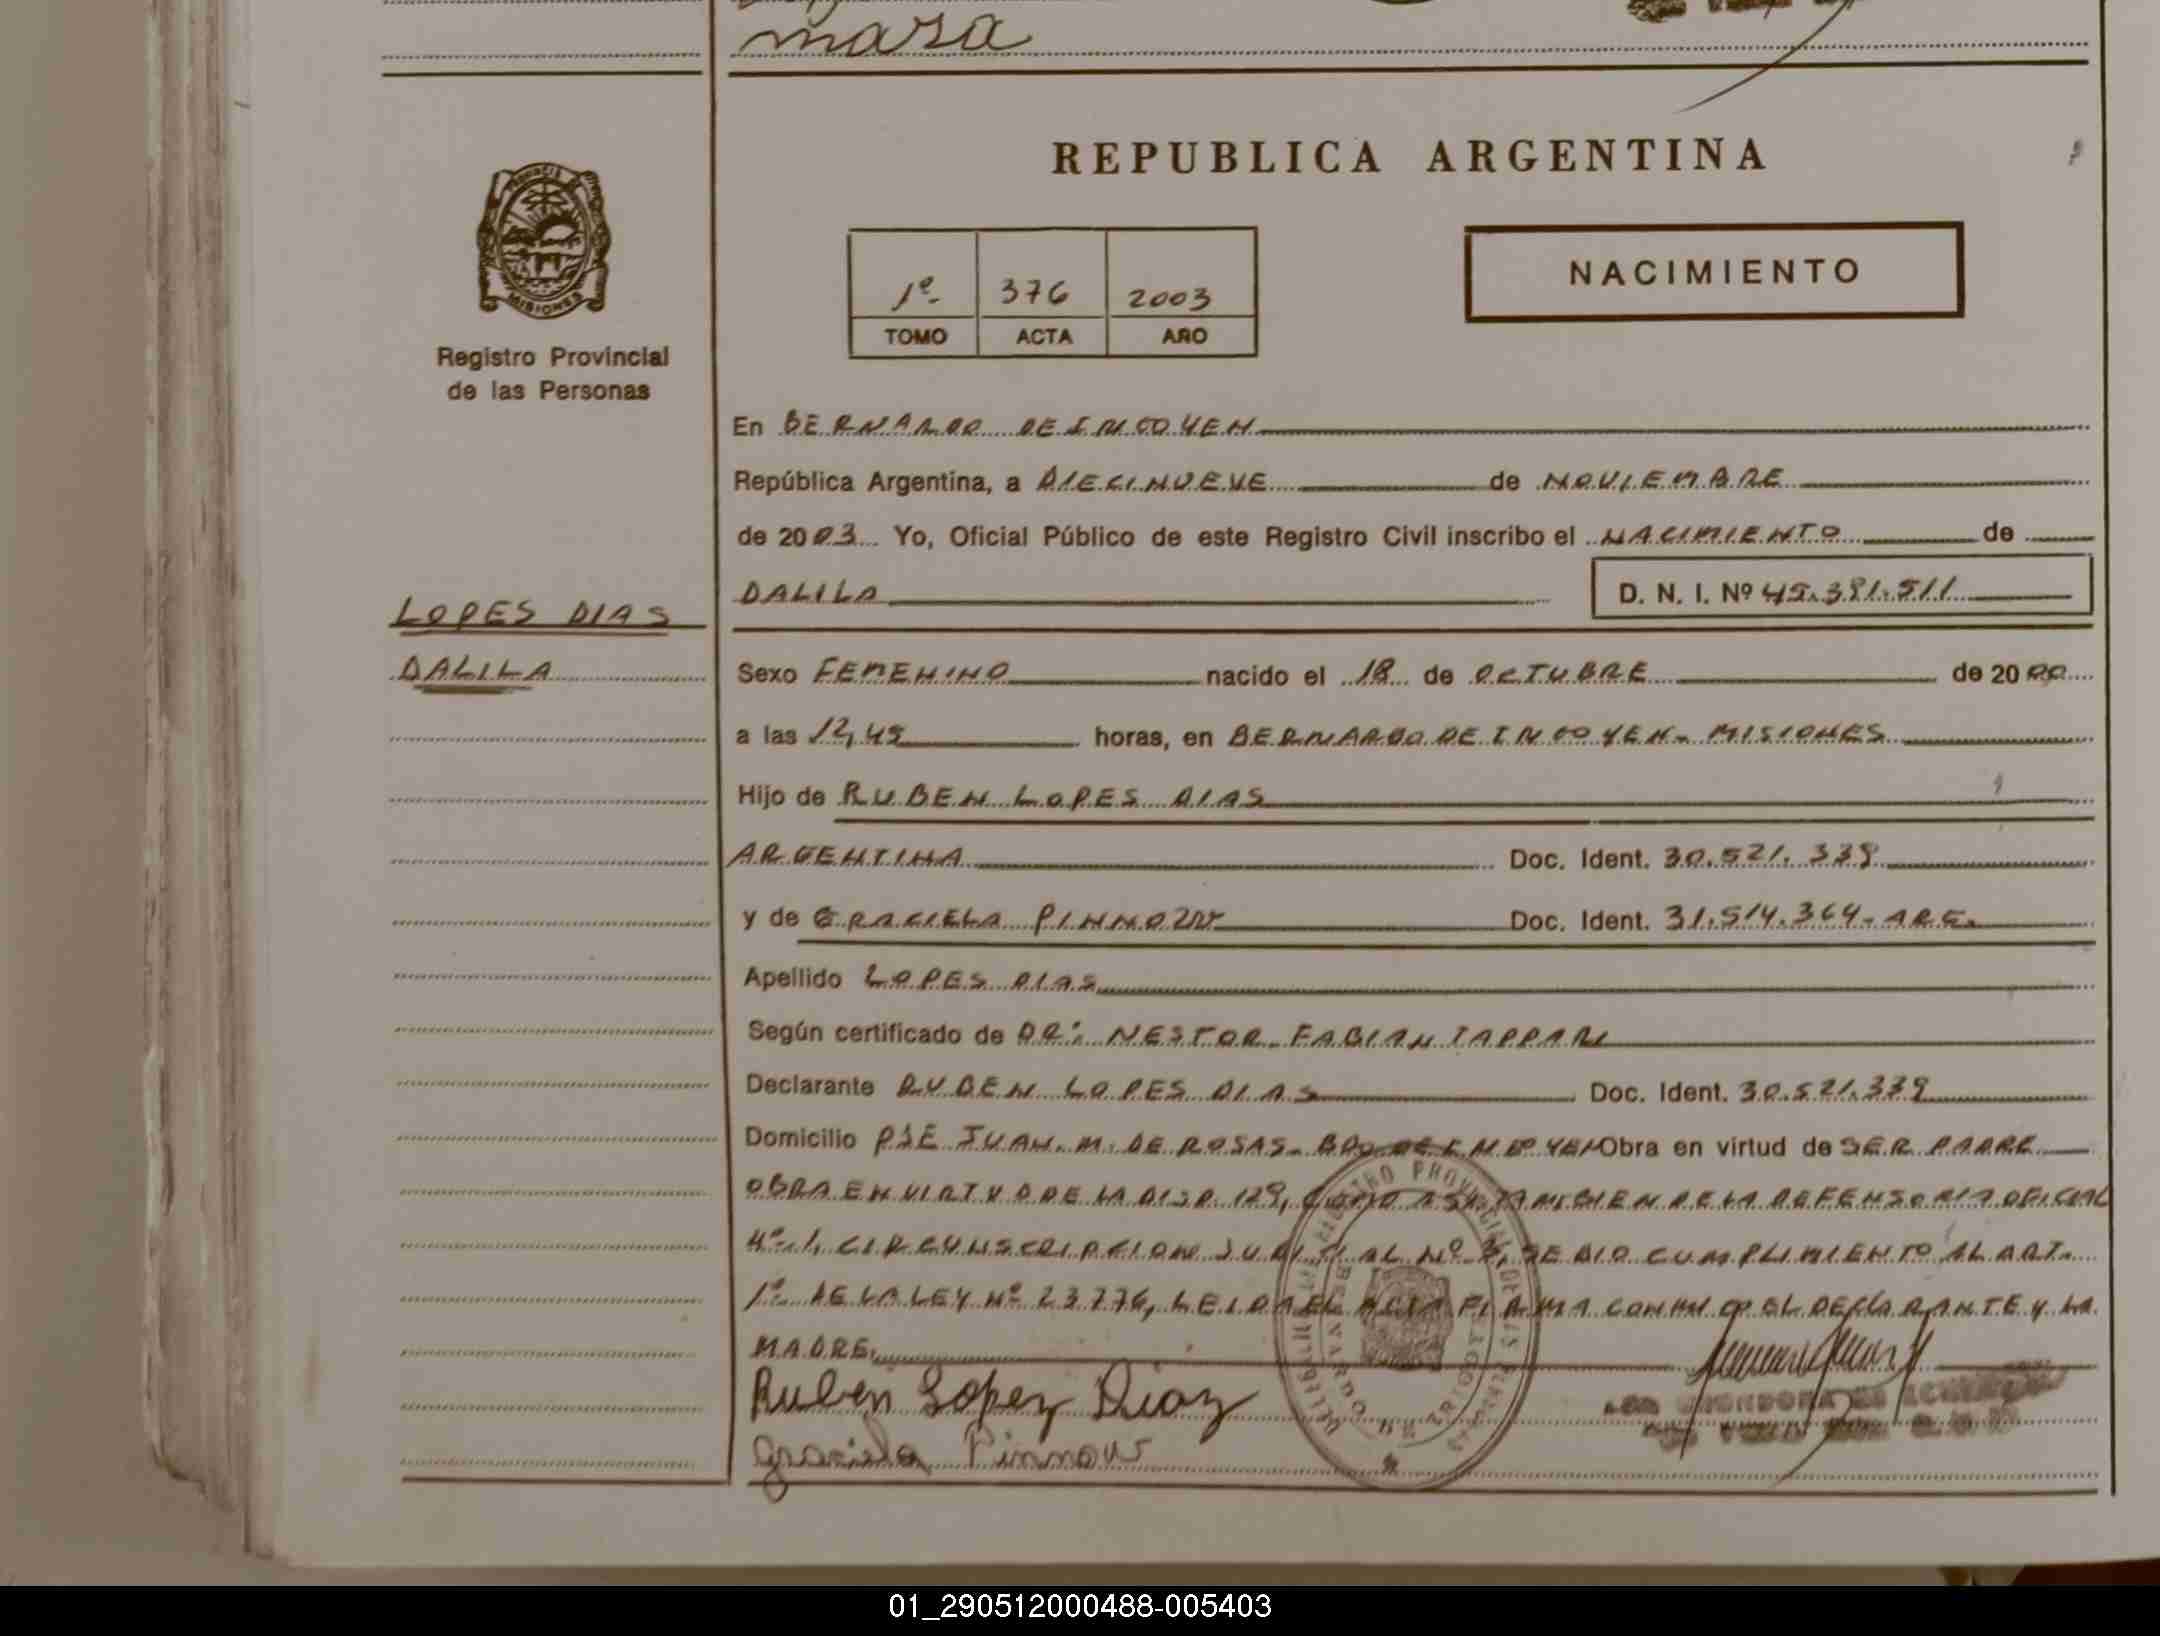 masa
REPUBLICA ARGENTINA
NACIMIENTO
MISIONES
Registro Provincial
de las Personas
1º 376 2003
TOMO ACTA AÑO
En BERNARDO DE IRIGOYEN
República Argentina, a DIECINUEVE de NOVIEMBRE
de 2003 Yo, Oficial Público de este Registro Civil inscribo el NACIMIENTO de
DALILA D. N. I. Nº 45.391.511
LOPES DIAS
DALILA
Sexo FEMENINO nacido el 18 de OCTUBRE de 2000
a las 12,45 horas, en BERNARDO DE IRIGOYEN - MISIONES
Hijo de RUBEN LOPES DIAS
ARGENTINA Doc. Ident. 30.521.339
y de GRACIELA PINNOW Doc. Ident. 31.514.364-ARG.
Apellido LOPES DIAS
Según certificado de DR: NESTOR FABIAN TAPPARI
Declarante RUBEN LOPES DIAS Doc. Ident. 30.521.339
Domicilio PJE JUAN M. DE ROSAS - BDO DE IRIGOYEN Obra en virtud de SER PADRE
OBRA EN VIRTUD DE LA DISP. 129, COMO ASI TAMBIEN DE LA DEFENSORIA OFICIAL
Nº 1, CIRCUNSCRIPCION JUDICIAL Nº 3, SE DIO CUMPLIMIENTO AL ART.
1º DE LA LEY Nº 23776, LEIDA EL ACTA FIRMA CONMIGO EL DECLARANTE Y LA
MADRE.
Ruben Lopez Diaz
Graciela Pinnow
01_290512000488-005403